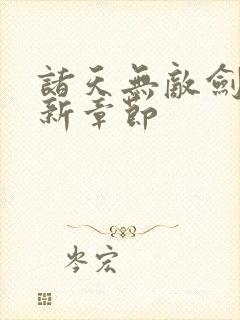 諸天無敵劍
新章節
岑宏